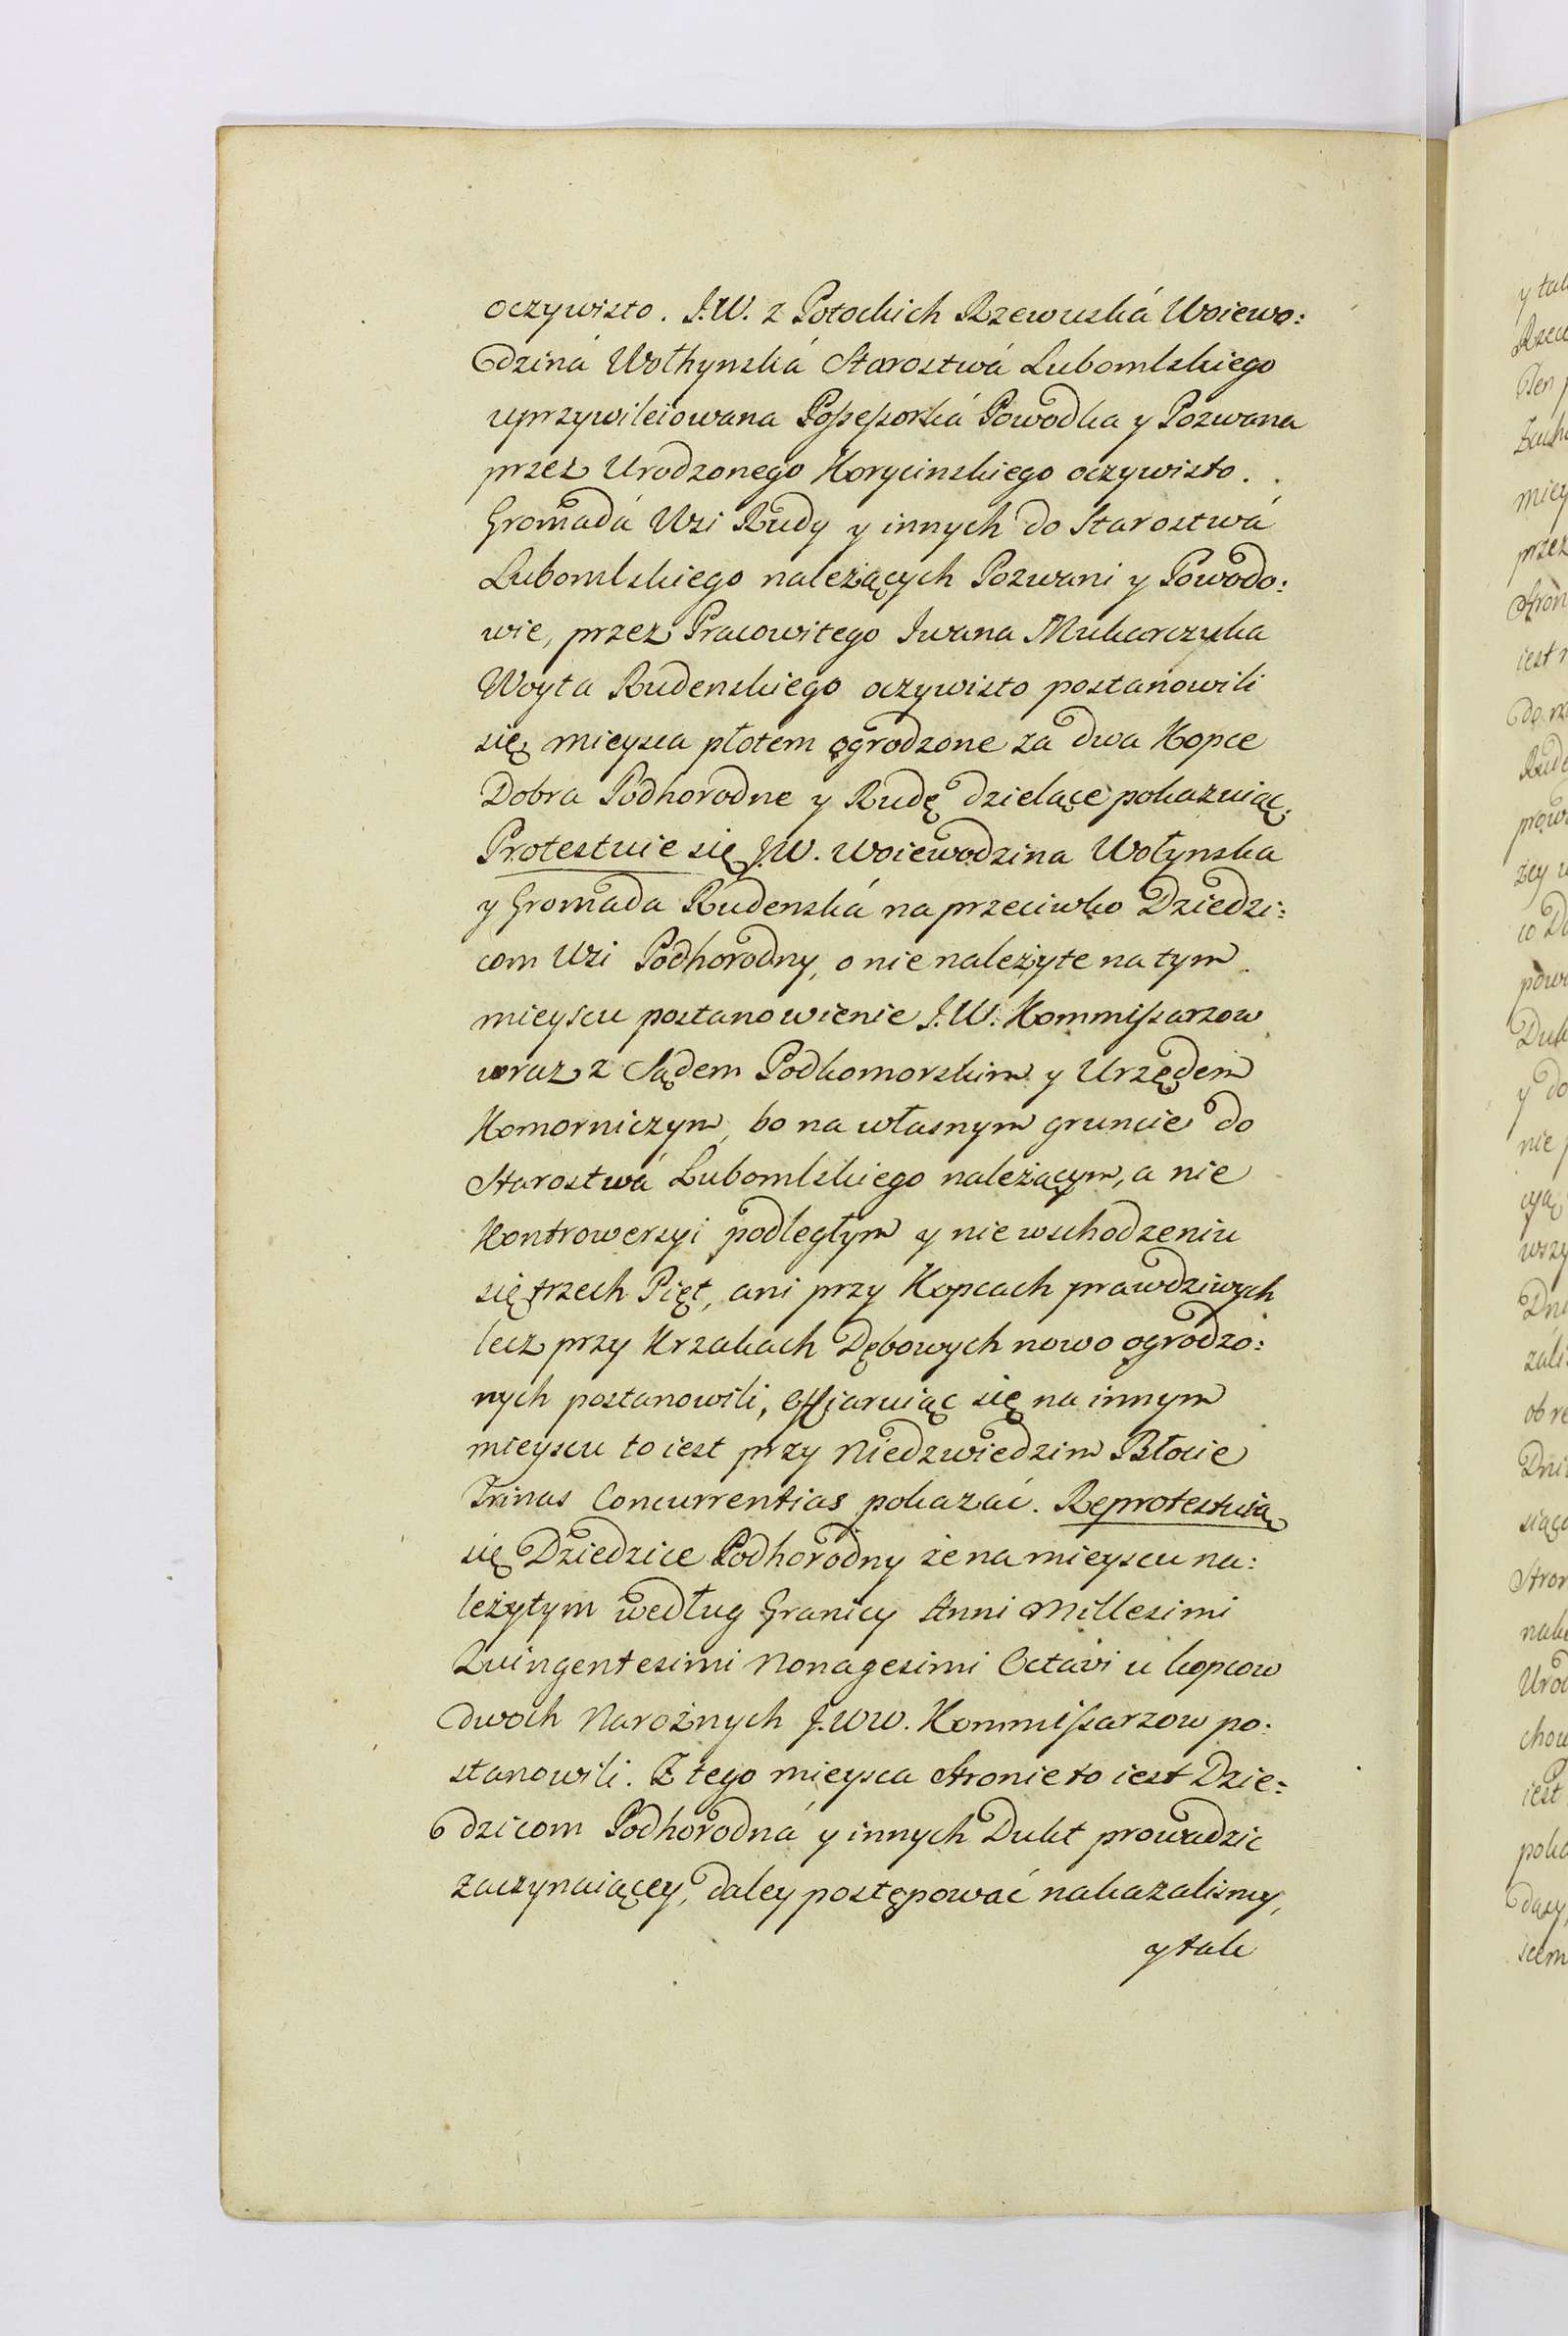 oczywisto. J.W. z Potockich Rzewuská Woiewo:
dziná Wołhynská Starostwá Lubomlskiego
uprzywileiowana Possessorká Powodka y Pozwana
przez Urodzonego Korycinskiego oczywisto.
Gromadá Wsi Rudy y innych do Starostwá
Lubomlskiego należących Pozwani y Powodo:
wie, przez Pracowitego Iwana Mukarczyka
Woyta Rudenskiego oczywisto postanowili
się, mieysca płotem ogrodzone za dwa Kopce
Dobra Podhorodne y Rudę dzielące pokazuiąc.
Protestuie się J.W. Woiewodzina Wołynska
y Gromada Rudenská na przeciwko Dziedzi:
com Wsi Podhorodny, o nie należyte na tym
mieyscu postanowienie J.W. Kommissarzow
wraz z Sądem Podkomorskim y Urzędem
Komorniczym, bo na własnym gruncie do
Starostwá Lubomlskiego należącym, a nie
Kontrowersyi podległym y nie wschodzeniu
się trzech Pięt, ani przy Kopcach prawdziwych
lecz przy Krzakach Dębowych nowo ogrodzo:
nych postanowili, offiaruiąc się na innym
mieyscu to iest przy Niedzwiedzim Błocie
Trinas Concurrentias pokazać. Reprotestuią
się Dziedzice Podhorodny że na mieyscu na:
leżytym według Granicy Anni Millesimi
Quingentesimi Nonagesimi Octavi u kopcow
dwoch Narożnych J.WW. Kommissarzow po:
stanowili. Z tego mieysca Stronie to iest Dzie:
dzicom Podhorodná y innych Dukt prowadzic
zaczynaiącey, daley postępować nakazalismy,
y tak